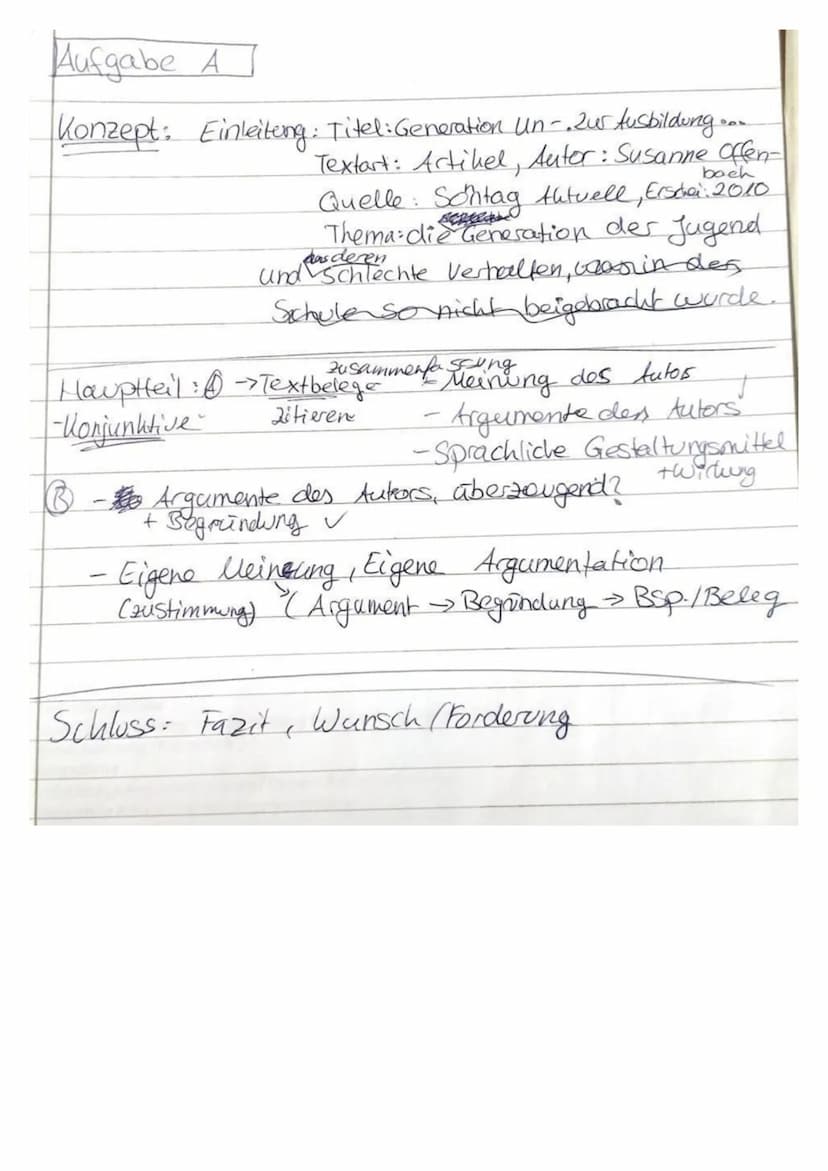 Aufgabe A
Konzept: Einleitung: Titel: Generation Un-. Zur Ausbildung...
Textart: Artikel, Autor: Susanne Offen-
bach
Quelle: Sontag Aktuell, Erschei: 2010
Thema: die Generation der Jugend
das deren
und schlechte Verhalten, was in der
Schule so nicht beigebracht wurde.
zusammenfassung
Hauptteil: A → Textbelege - Meinung des Autors
-Konjunktive- zitieren - Argumente des Autors
- Sprachliche Gestaltungsmittel
+ Wirkung
B - Argumente des Autors, überzeugend?
+ Begründung ✓
- Eigene Meinung, Eigene Argumentation
(zustimmung) (Argument → Begründung → Bsp./Beleg
Schluss: Fazit, Wunsch/Forderung